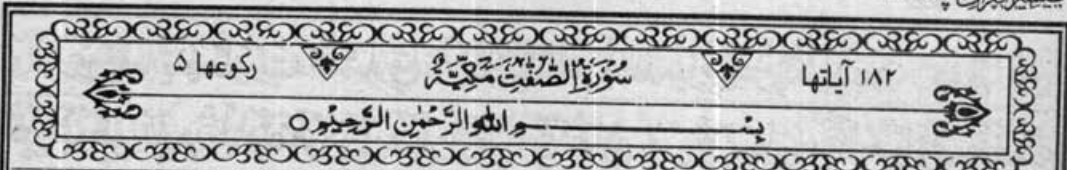 ۱۸۲ آیاتها سُوْرَةُ الصّٰفّٰتِ مَكِّيَّةٌ ركوعها ۵
بِسْمِ اللهِ الرَّحْمٰنِ الرَّحِيْمِ ○